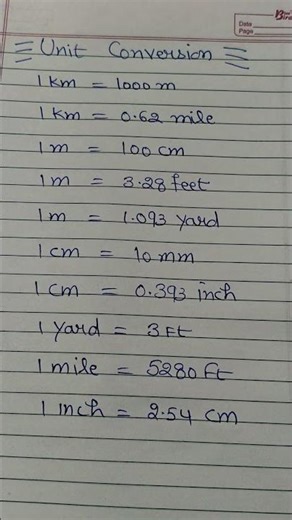 Date
Page
Unit Conversion
1 km = 1000 m
1 km = 0.62 mile
1 m = 100 cm
1 m = 3.28 feet
1 m = 1.093 yard
1 cm = 10 mm
1 cm = 0.393 inch
1 yard = 3 Ft
1 mile = 5280 Ft
1 inch = 2.54 cm